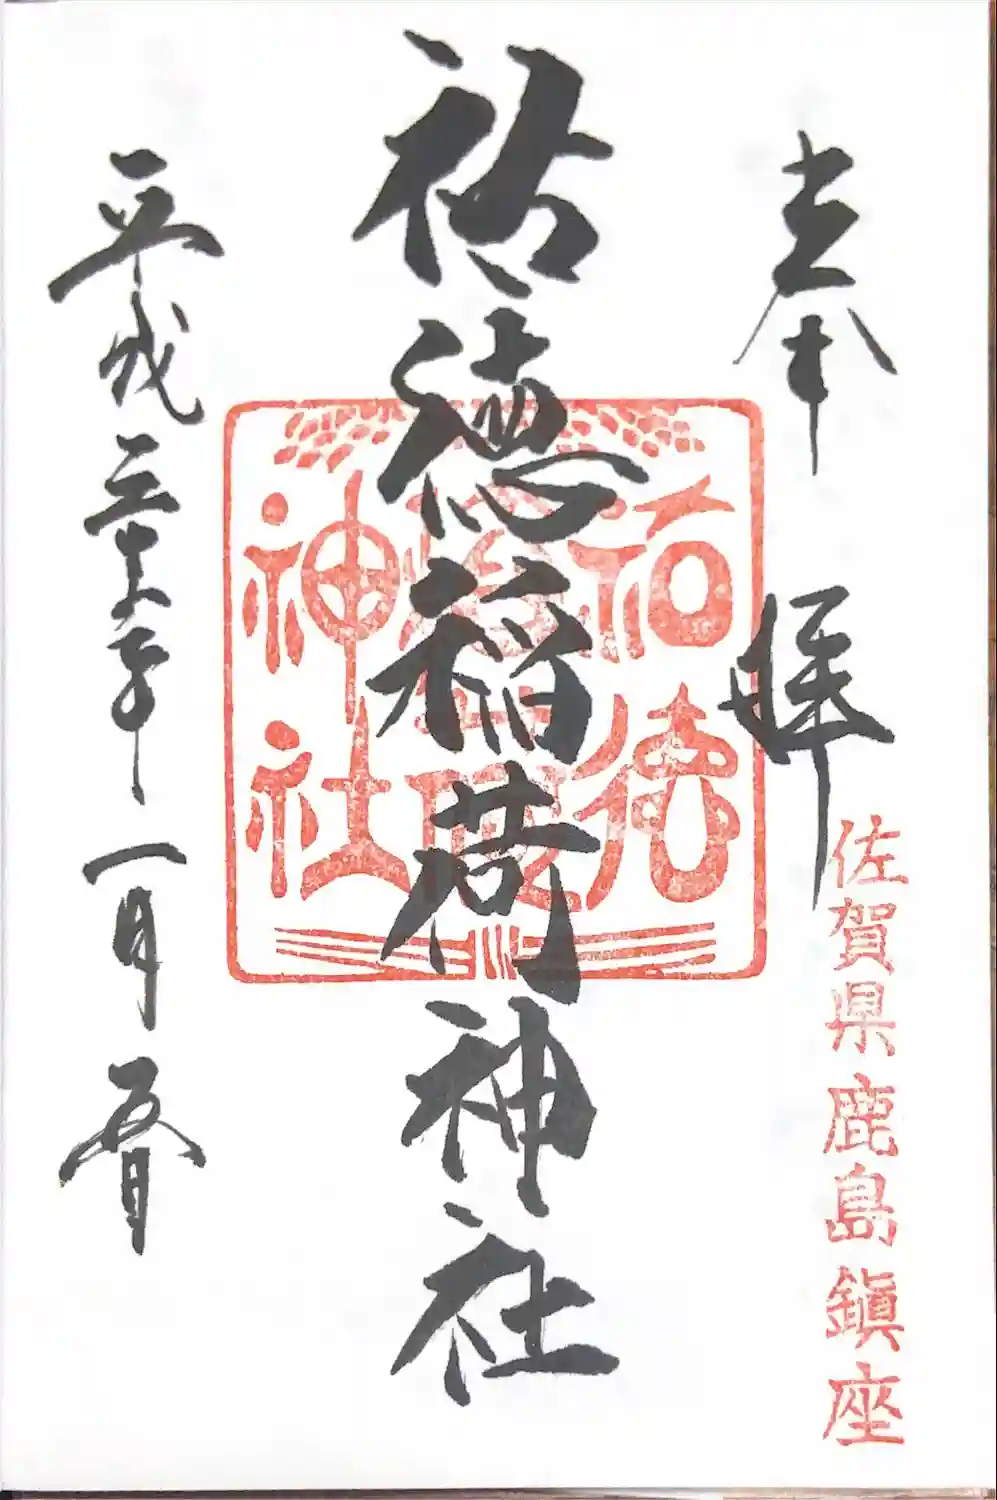 奉拝
佐賀県鹿島鎮座
祐徳稲荷神社
祐徳
稲荷
神社
平成三十一年一月五日